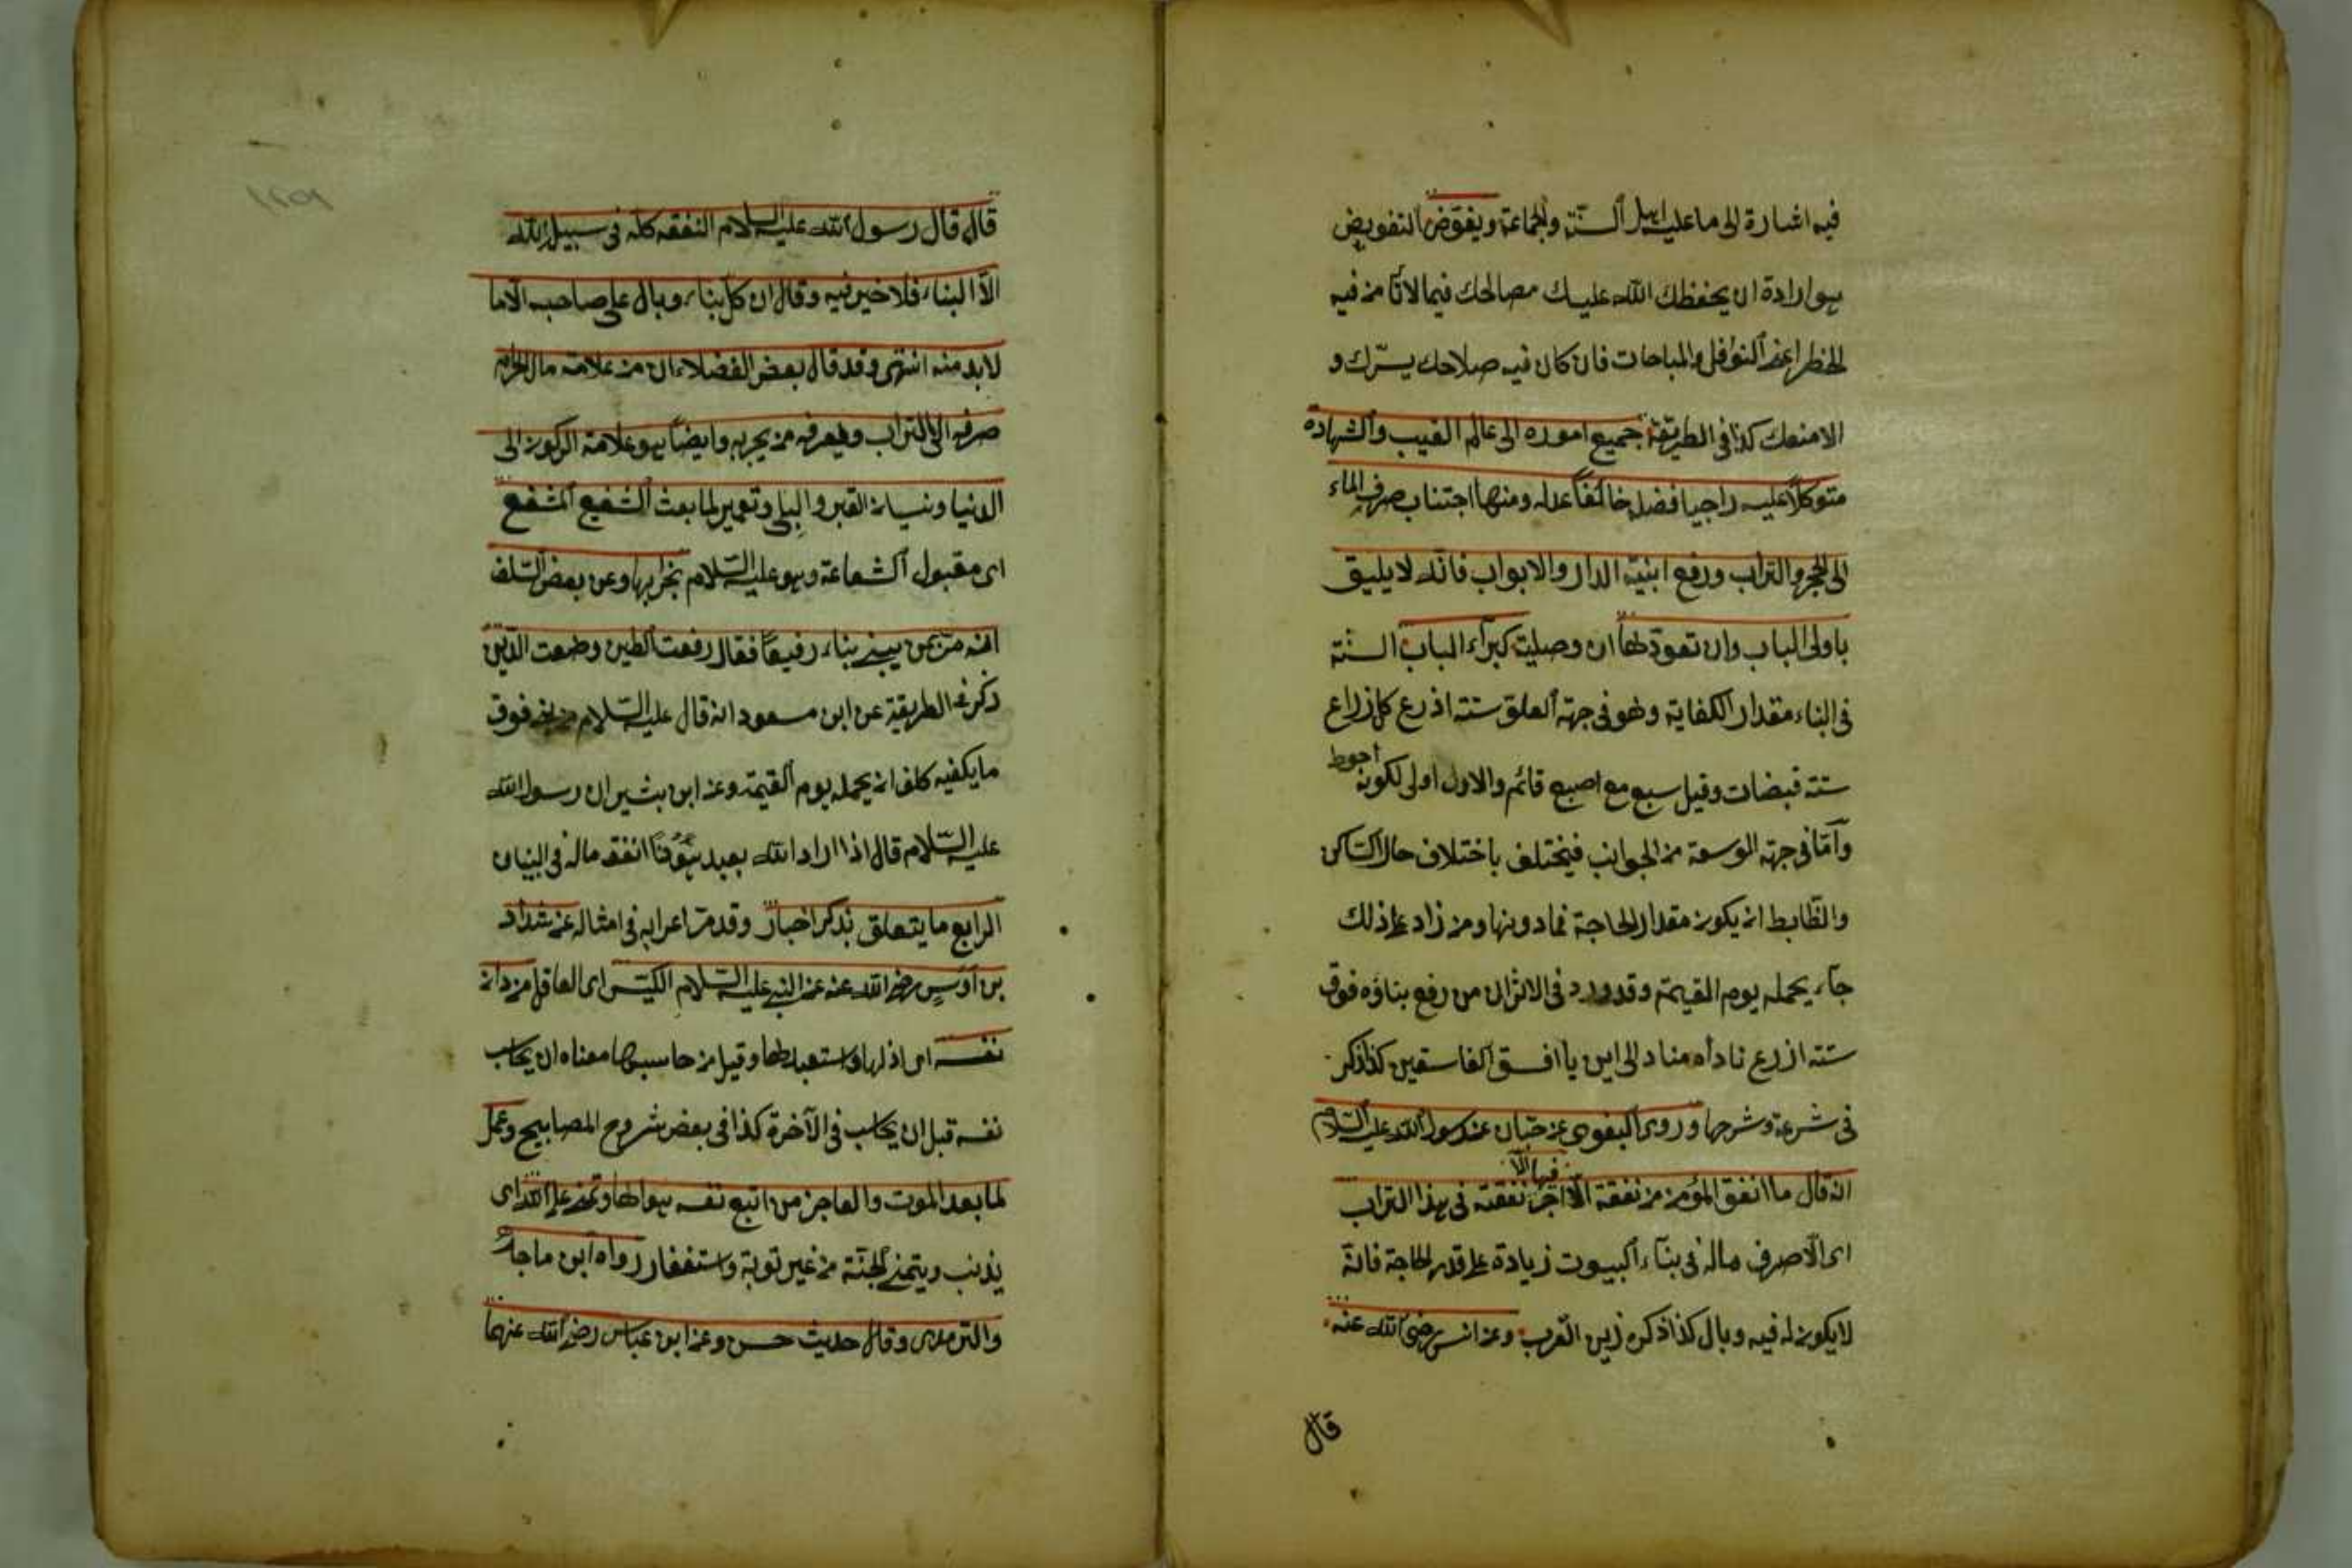 فيه اشارة الى ما عليه اهل السنّة والجماعة ويفوّض التفويض
هو ارادة ان يحفظك الله عليك مصالحك فيما لا تأمن فيه
الخطر اعنى النوافل والمباحات فان كان فيه صلاحك يسّرك و
الا منعك كذا فى الطريقة جميع اموره الى عالم الغيب والشهادة
متوكلاً عليه راجيا فضله خائفاً عدله ومنها اجتناب صرف الماء
الى الحجر والتراب ورفع ابنية الدار والابواب فانّه لا يليق
باولى الباب وان تعوّدها ان وصليّة كبراء الباب السنّة
فى البناء مقدار الكفاية وهو فى جهة العلو ستة اذرع كل ذراع
ستة قبضات وقيل سبع مع اصبع قائم والاول اولى لكونه احوط
وأمّا فى جهة الوسعة من الجوانب فيختلف باختلاف حال الساكن
والضّابط ان يكون مقدار الحاجة فما دونها ومن زاد على ذلك
جاء يحمله يوم القيمة وقد ورد فى الاثر ان من رفع بناؤه فوق
ستة اذرع ناداه مناد الى اين يا افسق الفاسقين كذا ذكر
فى شرعة وشرحها وروى البغوى عن حبّان عن رسول الله عليه السّلام
انه قال ما انفق المؤمن من نفقة الا اجر فيها الّا نفقته فى هذا التراب
اى الّا صرف ماله فى بناء البيوت زيادة على قدر الحاجة فانّه
لا يكون له فيه وبال كذا ذكره زين العرب وعن انس رضى الله عنه
قال
قال قال رسول الله عليه السلام النفقه كله فى سبيل الله
الّا البناء فلا خير فيه وقال ان كل بناء وبال على صاحبه الّا ما
لا بد منه انتهى وقد قال بعض الفضلاء ان من علامة مال الحرام
صرفه الى التراب ويعرفه من يجربه وايضاً هو علامة الركون الى
الدنيا ونسيان القبر والبلى وتعمير لما بعث الشفيع المشفع
اى مقبول الشفاعة وهو عليه السّلام بخرابها وعن بعض السّلف
انه مرّ بمن يبنى بناء رفيعاً فقال رفعت الطين وضعت الدّين
ذكر فى الطريقة عن ابن مسعود انه قال عليه السّلام من بنى فوق
ما يكفيه كلف ان يحمله يوم القيمة وعن ابن بشير ان رسول الله
عليه السّلام قال اذا اراد الله بعبد هَوُناً انفق ماله فى البنيان
الرابع ما يتعلق بذكر اخبار وقد مرّ اعرابه فى امثاله عن شدّاد
بن أوسٍ رضى الله عنه عن النبى عليه السّلام الكيّس اى العاقل من دان
نفسه اى اذلها واستعبدها وقيل من حاسبها معناه ان يحاسب
نفسه قبل ان يحاسب فى الآخرة كذا فى بعض شروح المصابيح وعمل
لما بعد الموت والعاجز من اتبع نفسه هواها وتمنى على الله اى
يذنب ويتمنى الجنّة من غير توبة واستغفار رواه ابن ماجة
والترمدى وقال حديث حسن وعن ابن عباس رضى الله عنهما